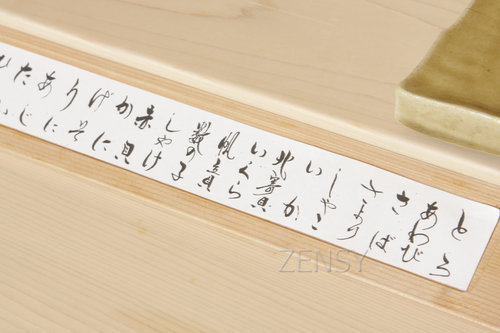 とろ
あわび
さば
さより
しゃこ
いか
北寄貝
いくら
帆立貝
数の子
しゃけ
赤貝
かに
げそ
ありに
あじ
たい
ZENSY